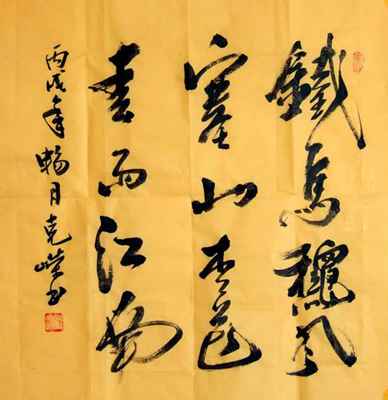 鐵馬龝風
塞北杏花
春雨江南
丙戌年暢月克嶸书